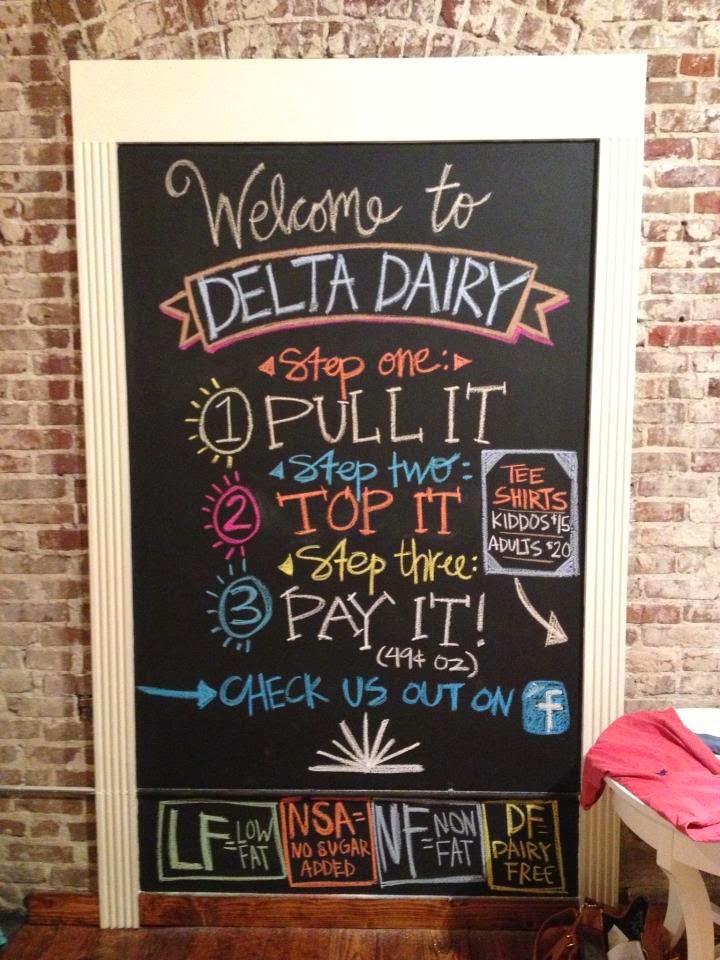 Welcome to
DELTA DAIRY
Step one:
1 PULL IT
Step two:
2 TOP IT
Step three:
3 PAY IT!
(49¢ OZ)
TEE
SHIRTS
KIDDOS $15
ADULTS $20
CHECK US OUT ON f
LF=LOW
FAT
NSA=
NO SUGAR
ADDED
NF=NON
FAT
DF=
DAIRY
FREE